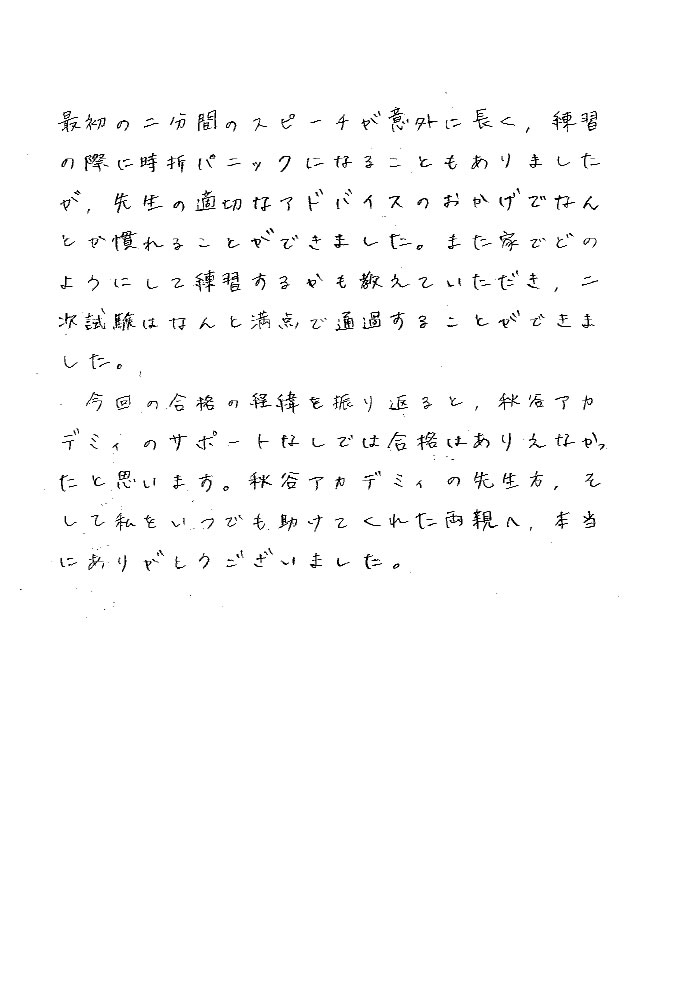 最初の二分間のスピーチが意外に長く,練習
の際に時折パニックになることもありました
が,先生の適切なアドバイスのおかげでなん
とか慣れることができました。また家でどの
ようにして練習するかも教えていただき,二
次試験はなんと満点で通過することができま
した。
今回の合格の経緯を振り返ると,秋谷アカ
デミィのサポートなしでは合格はありえなかっ
たと思います。秋谷アカデミィの先生方,そ
して私をいつでも助けてくれた両親へ,本当
にありがとうございました。